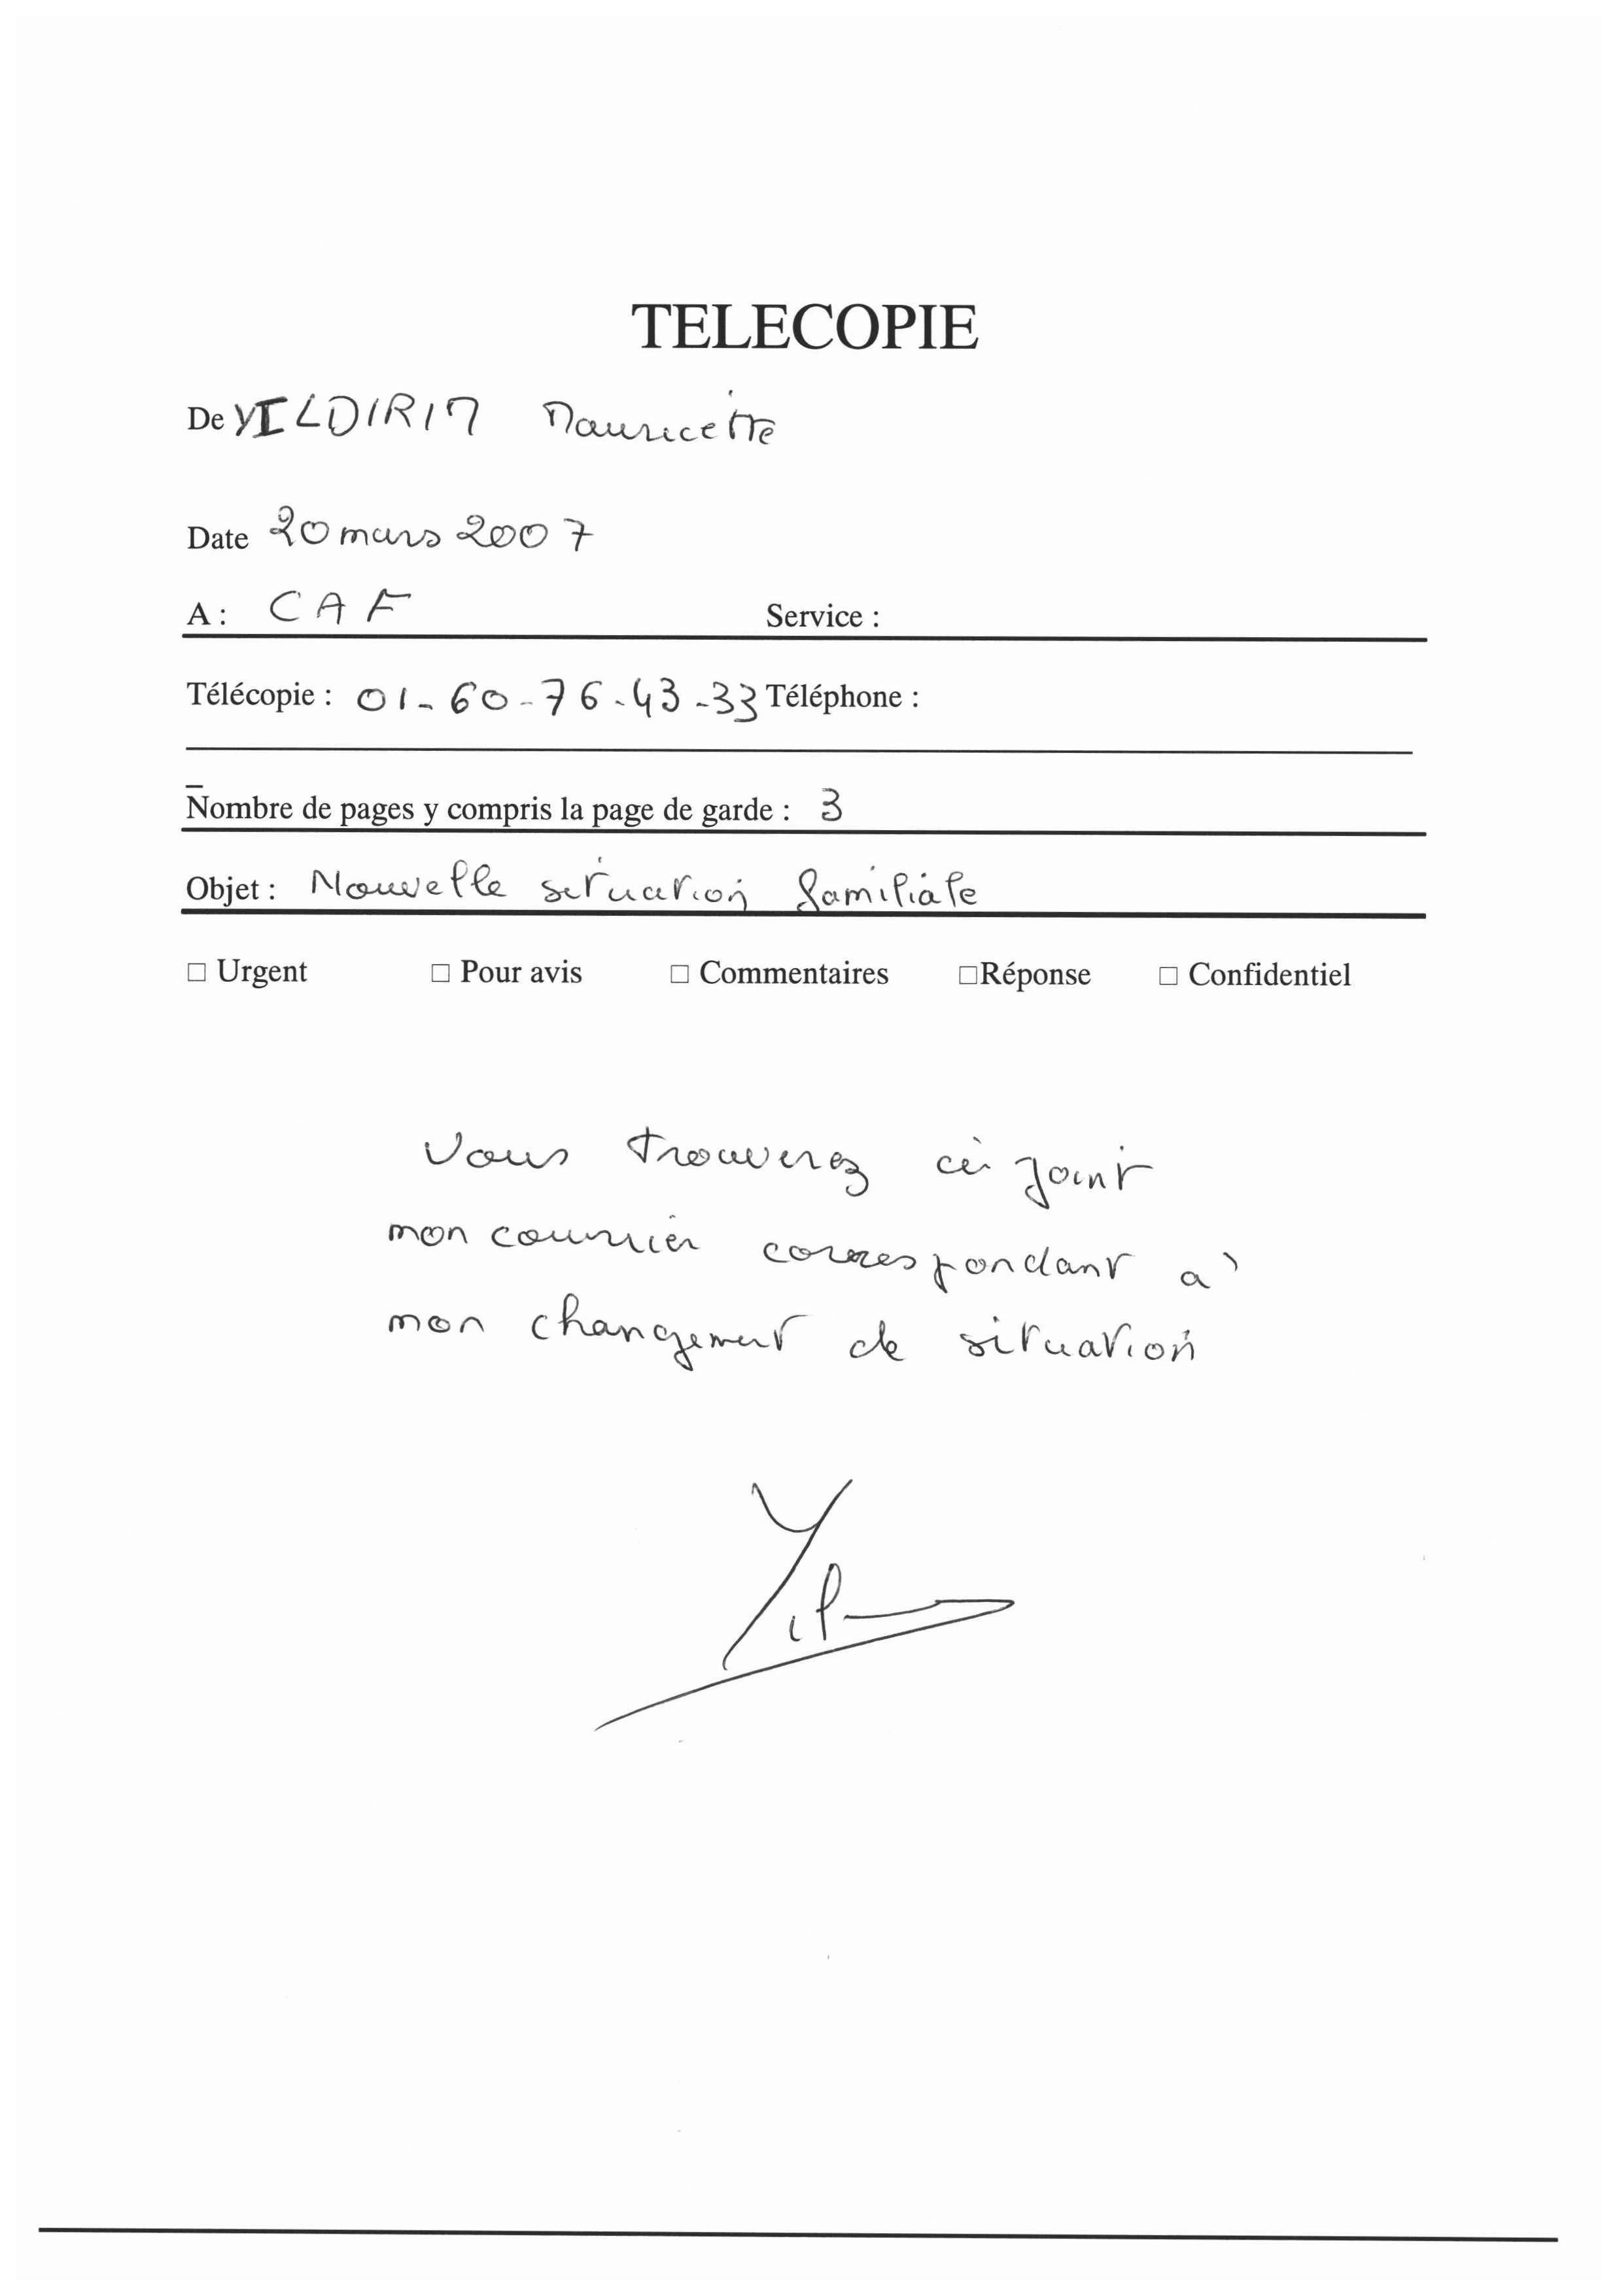 TELECOPIE
De YILDIRIM Mauricette
Date 20 mars 2007
A : CAF Service :
Télécopie : 01-60-76-43-33 Téléphone :
Nombre de pages y compris la page de garde : 3
Objet : Nouvelle situation familiale
□ Urgent □ Pour avis □ Commentaires □Réponse □ Confidentiel
Vous trouverez ci joint
mon courrier correspondant à
mon changement de situation